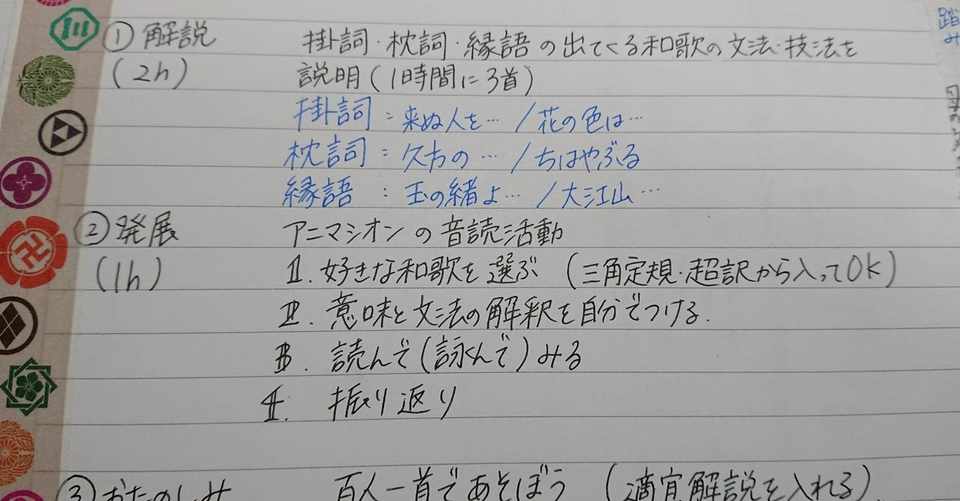 ① 解説 掛詞・枕詞・縁語の出てくる和歌の文法・技法を
(2h) 説明(1時間に3首)
掛詞:来ぬ人を…/花の色は…
枕詞:久方の…/ちはやぶる
縁語:玉の緒よ…/大江山…
② 発展 アニマシオンの音読活動
(1h) 好きな和歌を選ぶ(三角定規・超訳から入ってOK)
意味と文法の解釈を自分でつける.
読んで(詠んで)みる
振り返り
③ おたのしみ 百人一首であそぼう(適宜解説を入れる)
踏み